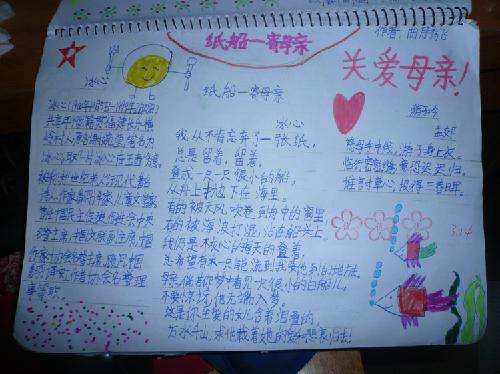 纸船一寄母亲
作者:
关爱母亲!
冰心
冰心(1900年10月5日-1999年2月28日)
享年99岁,籍贯福建长乐横
岭村人,原名谢婉莹,笔名为
冰心,取"一片冰心在玉壶"为意。
被称为"世纪老人"。现代著名
诗人,作家,翻译家,儿童文学家。
曾任中国民主促进会中央
名誉主席,中国文联副主席,中国
作家协会名誉主席,顾问,中国
翻译工作者协会名誉理
事等职。
纸船一寄母亲
冰心
我从不肯妄弃了一张纸,
总是留着,留着,
叠成一只一只很小的船儿,
从舟上抛下在海里。
有的被天风吹卷到舟中的窗里,
有的被海浪打湿,沾在船头上。
我仍是不灰心的每天的叠着,
总希望有一只能流到我要他到的地方。
母亲,倘若你梦中看见一只很小的白船儿,
不要惊讶他无端入梦。
这是你至爱的女儿含着泪叠的,
万水千山,求他载着她的爱和悲哀归去!
游子吟
孟郊
慈母手中线,游子身上衣。
临行密密缝,意恐迟迟归。
谁言寸草心,报得三春晖。
3.14